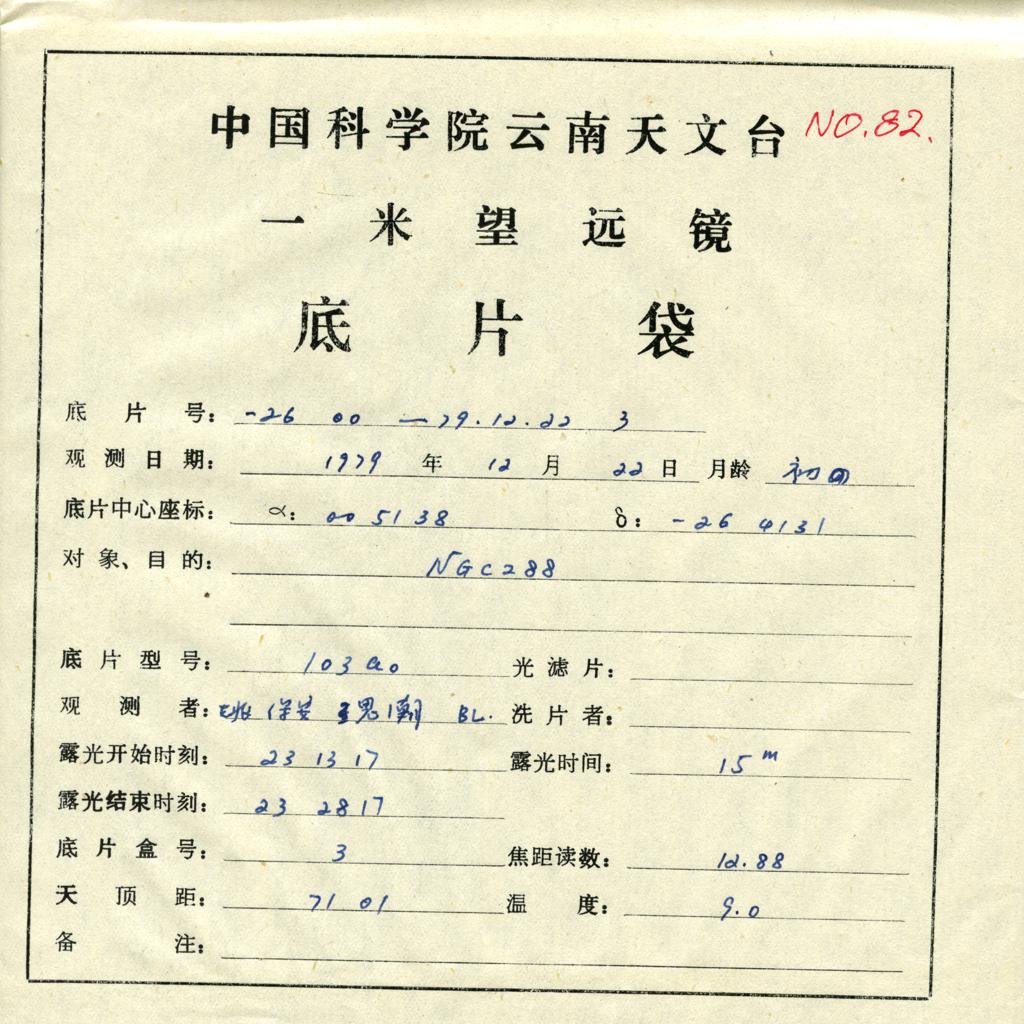 中国科学院云南天文台 NO.82.
一米望远镜
底片袋
底片号: -26 00 — 79.12.22 3
观测日期: 1979 年 12 月 22 日 月龄 初四
底片中心座标: α: 00 51 38 δ: -26 41 31
对象、目的: NGC288
底片型号: 103aO 光滤片:
观测者: 保 思 BL. 洗片者:
露光开始时刻: 23 13 17 露光时间: 15m
露光结束时刻: 23 28 17
底片盒号: 3 焦距读数: 12.88
天顶距: 71 01 温度: 9.0
备注: